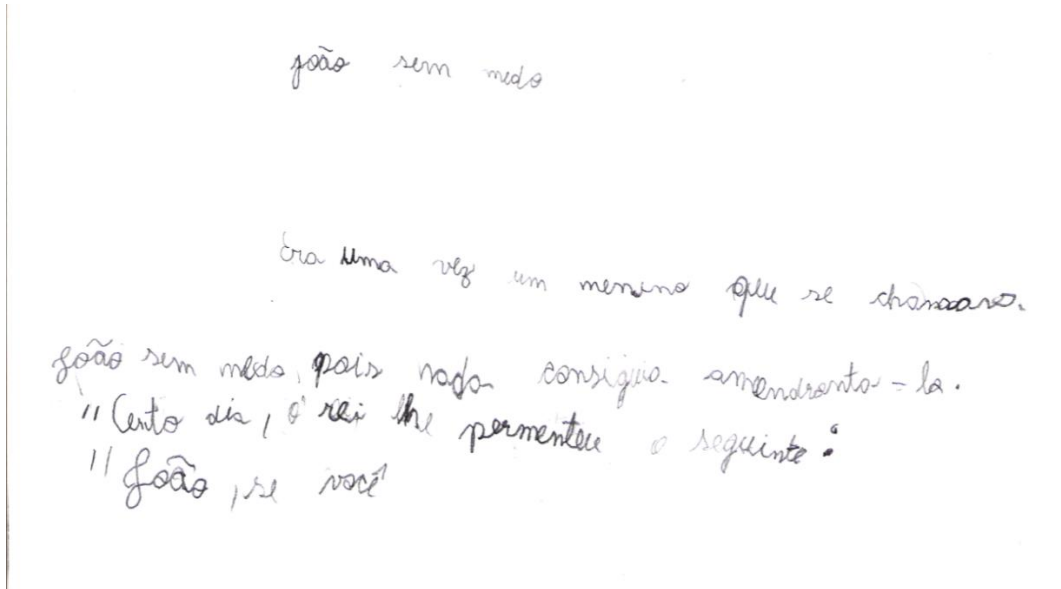 joão sem medo
Era uma vez um menino que se chamava.
João sem medo, pois nada consiguia amendronta-lo.
"Certo dia, o rei lhe permenteu o seguinte:
"João, se você